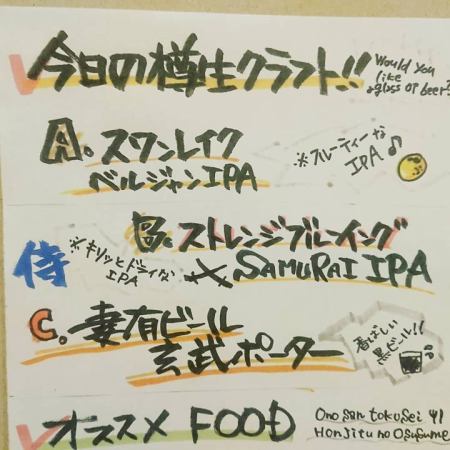 今日の樽生クラフト!!
Would you
like
a glass of beer?
A. スワンレイク
ベルジャンIPA
※フルーティーな
IPA♪
B. ストレンジブルーイング
× SAMURAI IPA
侍
※キリッとドライな
IPA
C. 妻有ビール
玄武ポーター
香ばしい
黒ビール!!
オススメ FOOD
Ono san tokusei
Honjitu no Osusume